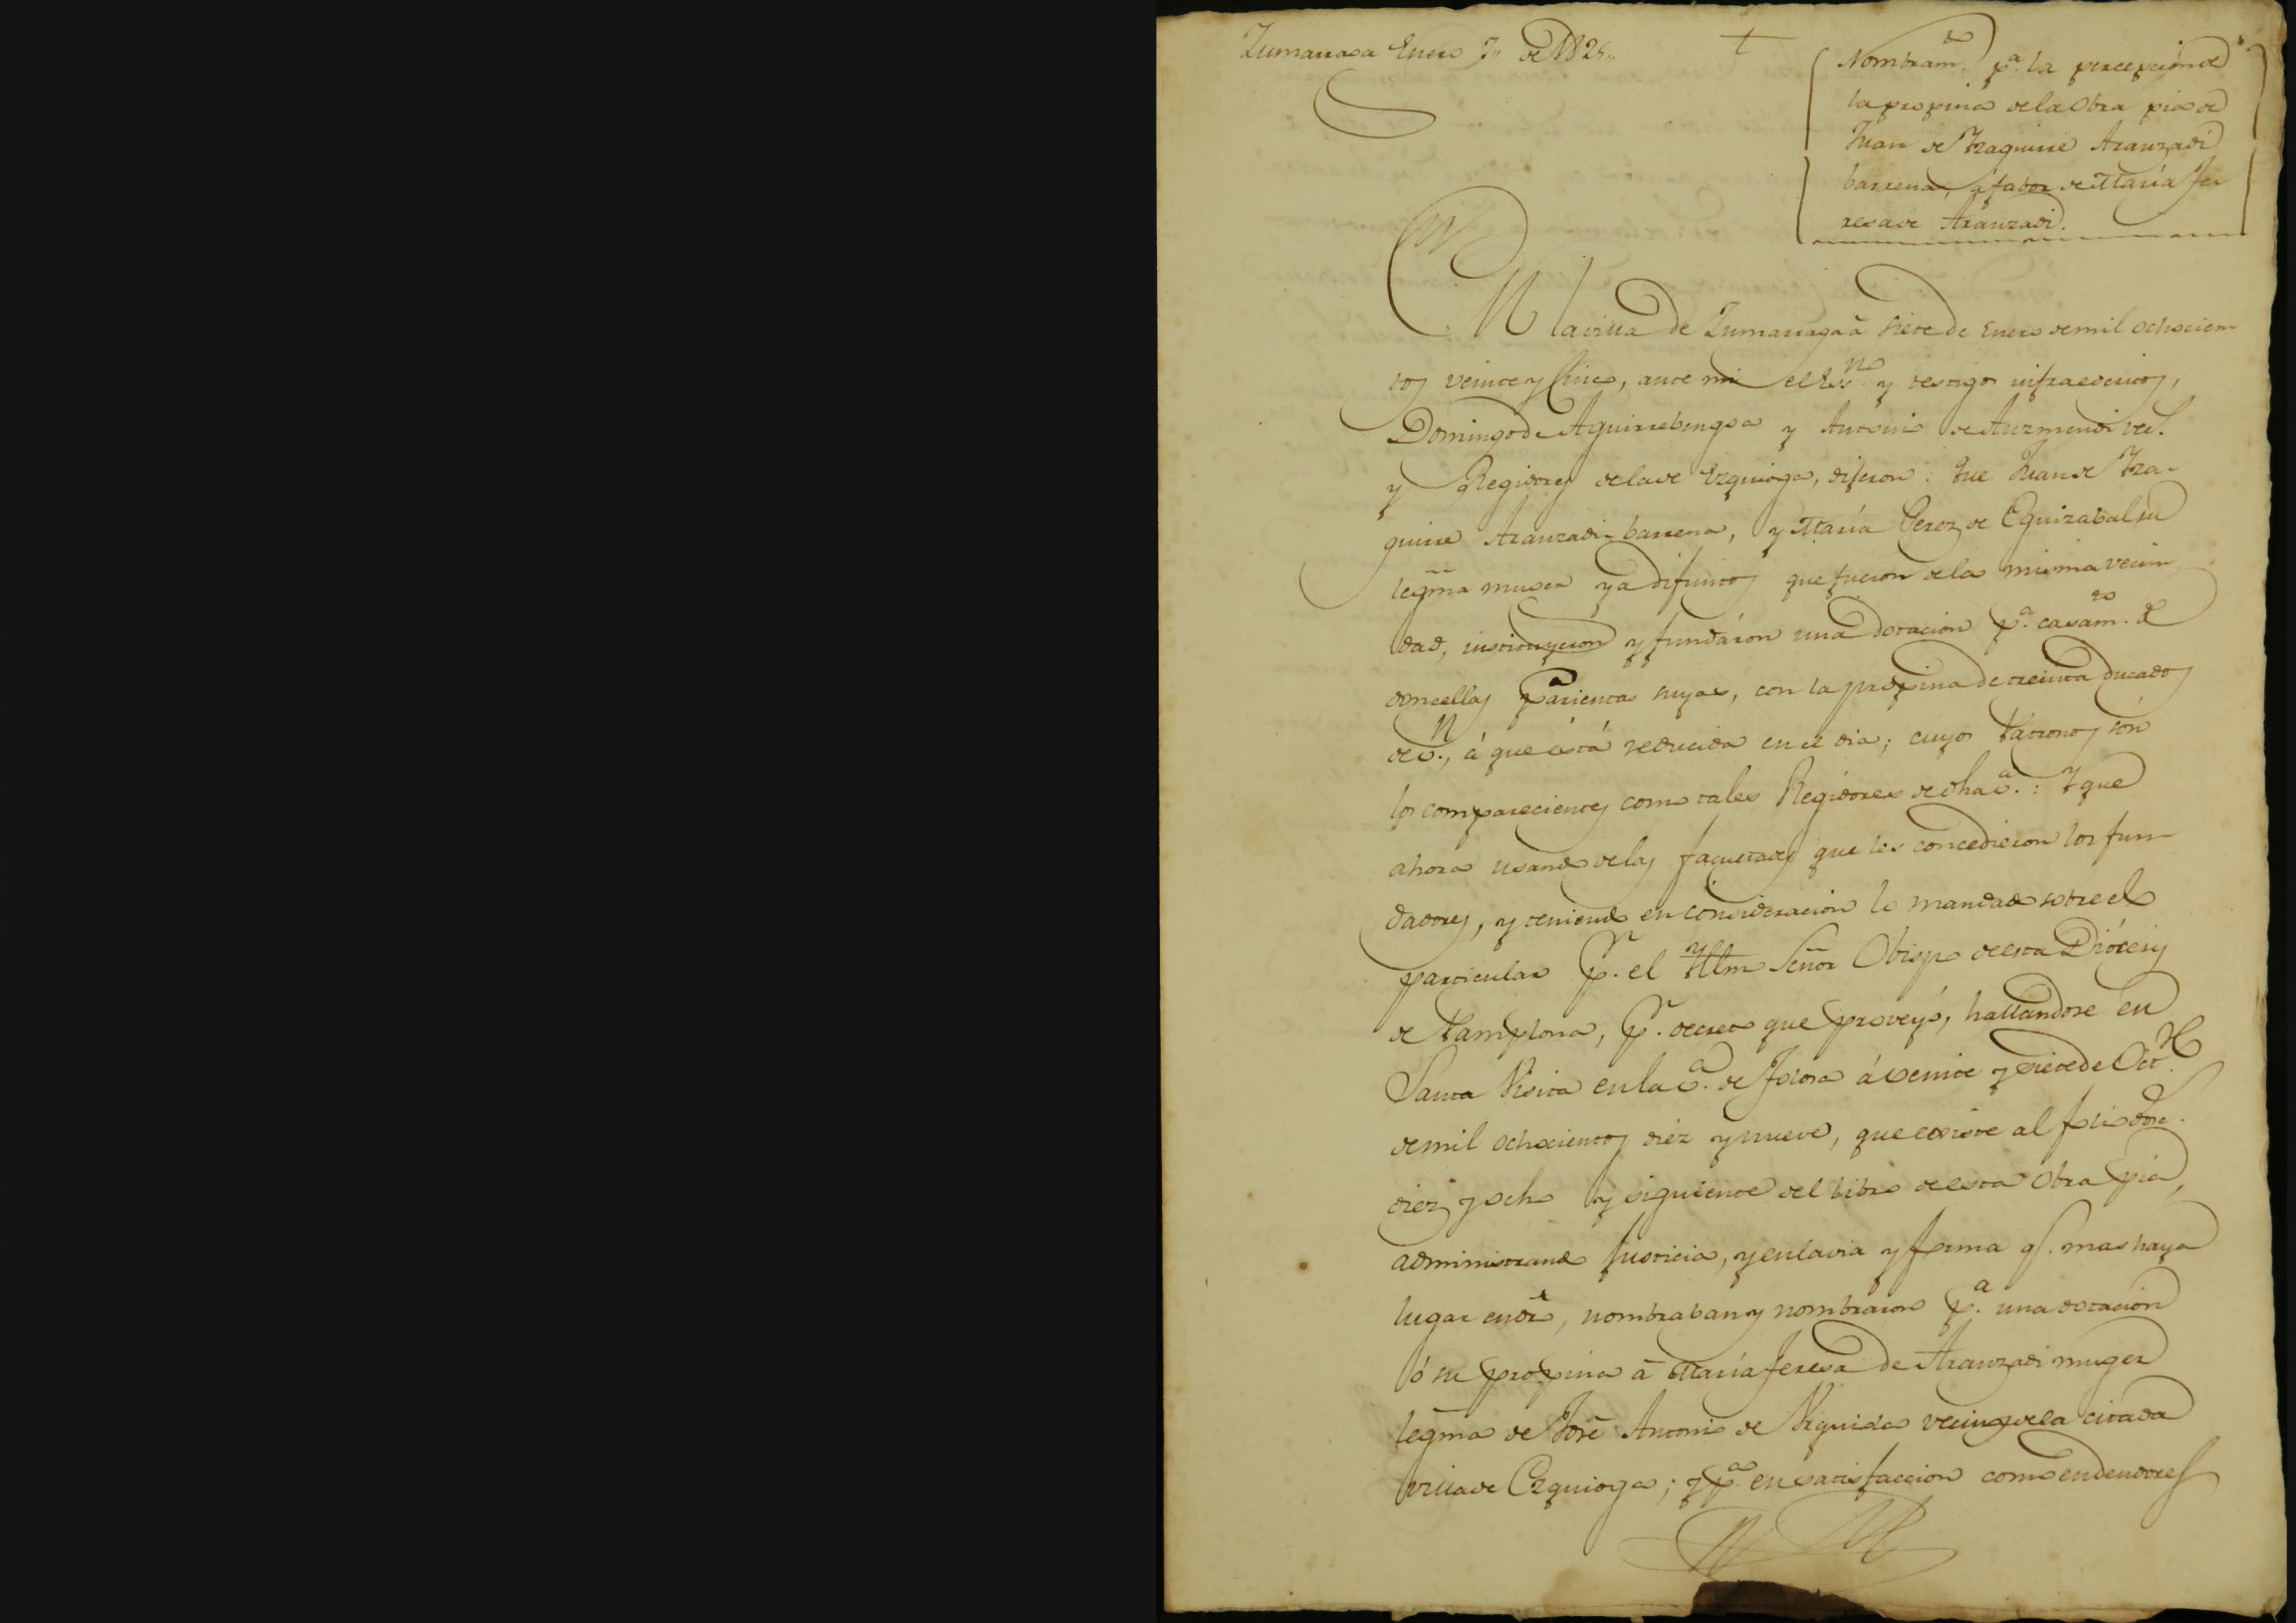 Zumarraga Enero 7,, de 1825,,
+
Nombram.to p.a la percepcion de
la propina de la Obra pia de
Juan de Yzaguirre Aranzadi
barrena, á fabor de María Te
resa de Aranzadi.
En la villa de Zumarraga á siete de Enero de mil ochocien-
tos veinte y Cinco, ante mi el Ess.no y testigos infraescritos,
Domingo de Aguirrebengoa y Antonio de Auzmendi vec.s
y Regidores de la de Ezquioga, dijeron: Que Juan de Yza-
guirre Aranzadi-barrena, y María Perez de Eguizabal su
legma muger ya difuntos que fueron de la misma vecin
dad, instituyeron y fundáron una dotacion p.a casam.to de
doncellas parientas suyas, con la propina de treinta ducados
de v.n, á que está reducida en el dia; cuyos Patronos són
los comparecientes como tales Regidores de dha v.a: Y que
ahora usando de las facultades que les concedieron los fun-
dadores, y teniendo en consideracion lo mandado sobre el
particular p.r el Yllmo Señor Obispo de esta Diócesis
de Pamplona, p.r decreto que proveyó, hallandose en
Santa Visita en la v.a de Tolosa á veinte y siete de Oct.re
de mil ochocientos diez y nueve, que existe al folio doc.
diez y ocho y siguiente del libro de esta Obra pía,
administrando Justicia, y en la via y forma q.e mas haya
lugar en dro, nombraban y nombraron p.a una dotación
ó su propina á María Teresa de Aranzadi muger
legma de José Antonio de Urquiola vecino de la citada
villa de Ezquioga; y p.a en satisfaccion como endendores